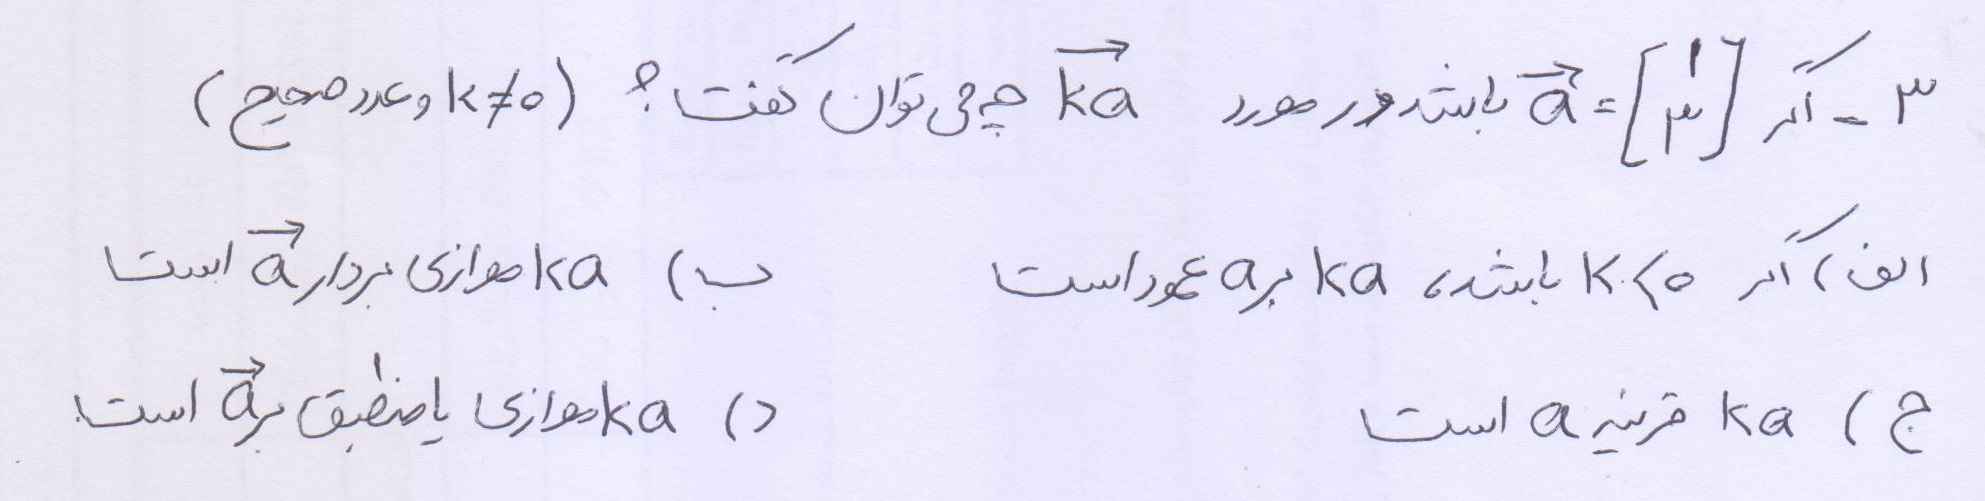 ۳- اگر a⃗ = [۱ ۳] باشد در مورد ka⃗ چه می توان گفت؟ (k≠۰ و عدد صحیح)
الف) اگر k<۰ باشد، ka بر a عمود است ب) ka موازی بردار a⃗ است
ج) ka قرینه a است د) ka موازی یا منطبق بر a⃗ است.